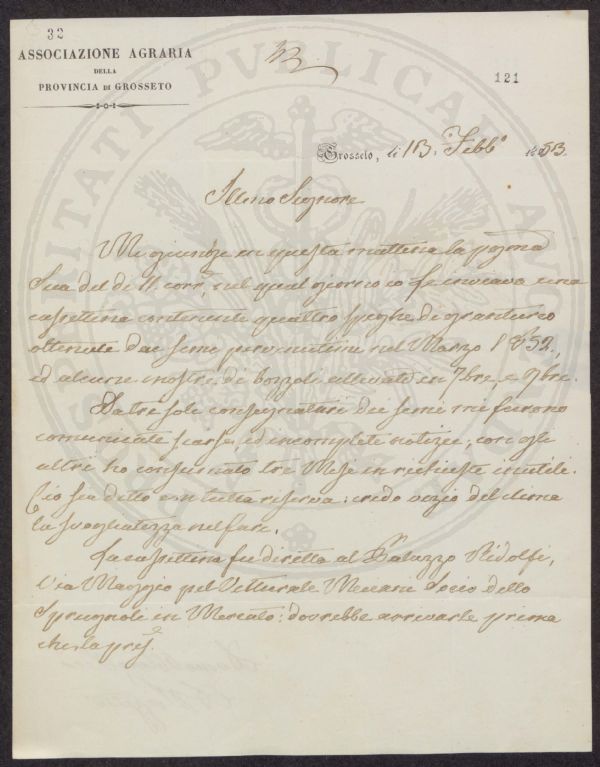 32
ASSOCIAZIONE AGRARIA
DELLA
PROVINCIA DI GROSSETO
R
121
Grosseto, li 13. Febb.º 1853.
Illmo Signore
Mi giunse in questa mattina la pregma
Sua del dì 11. corr.e, nel qual giorno io Le inviava una
cassettina contenente quattro spighe di granturco
ottenute dai semi pervenutimi nel Marzo 1852.,
ed alcune mostre di bozzoli allevati in 7bre, e 9bre.
Da tre soli consegnatari dei semi mi furono
comunicate scarse, ed incomplete notizie; con gli
altri ho consumato tre Mesi in richieste inutili.
Ciò sia detto con tutta riserva: credo vizio del clima
la svogliatezza nel fare.
La cassettina fu diretta al Palazzo Ridolfi,
Via Maggio pel Vetturale Meccani Socio dello
Spagnoli in Mercato: dovrebbe arrivarle prima
che la pres.e